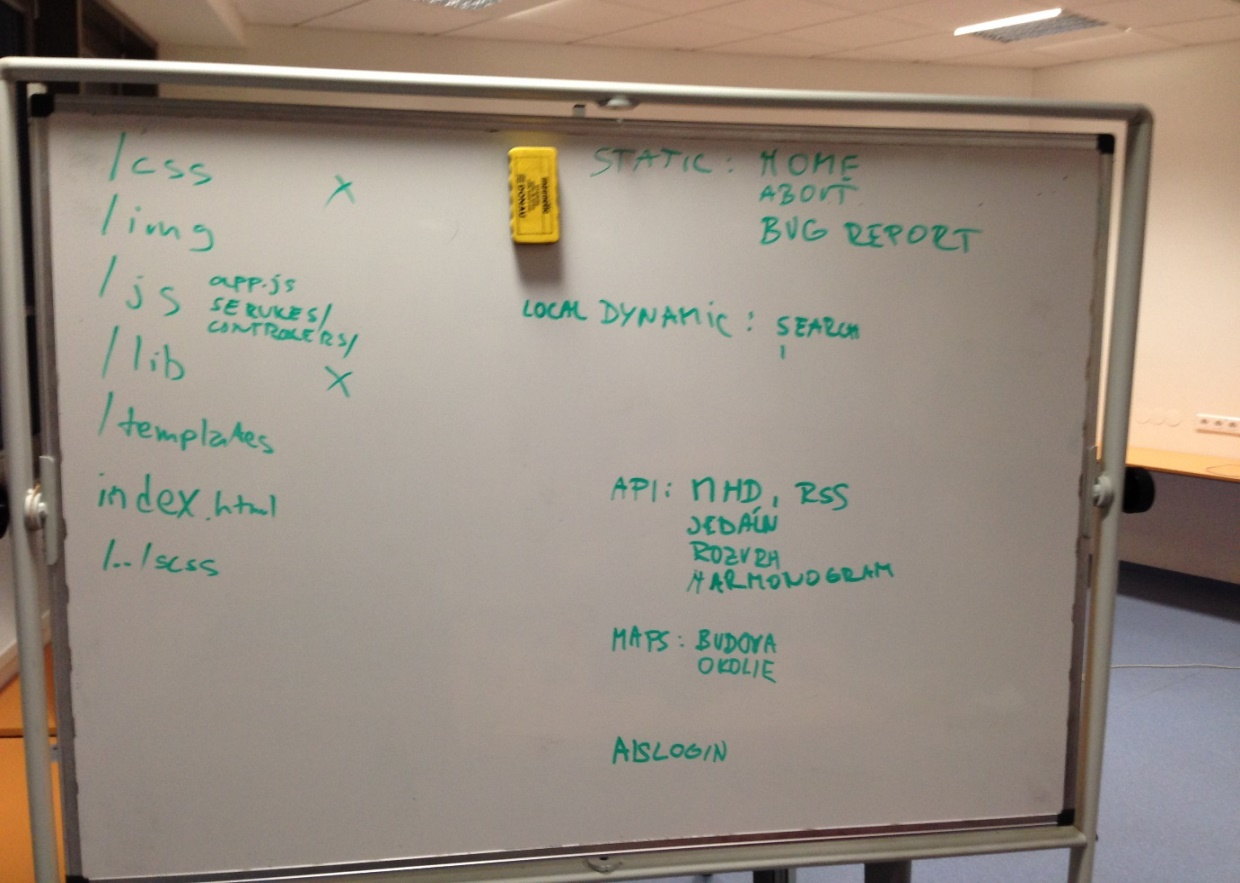 /css
X
/img
/js app.js
SERVICES/
CONTROLERS/
/lib
X
/templates
index.html
/../scss
STATIC: HOME
ABOUT
BUG REPORT
LOCAL DYNAMIC: SEARCH
API: MHD, RSS
JEDÁLN
ROZVRH
HARMONOGRAM
MAPS: BUDOVA
OKOLIE
AISLOGIN
magnetic
DONAU